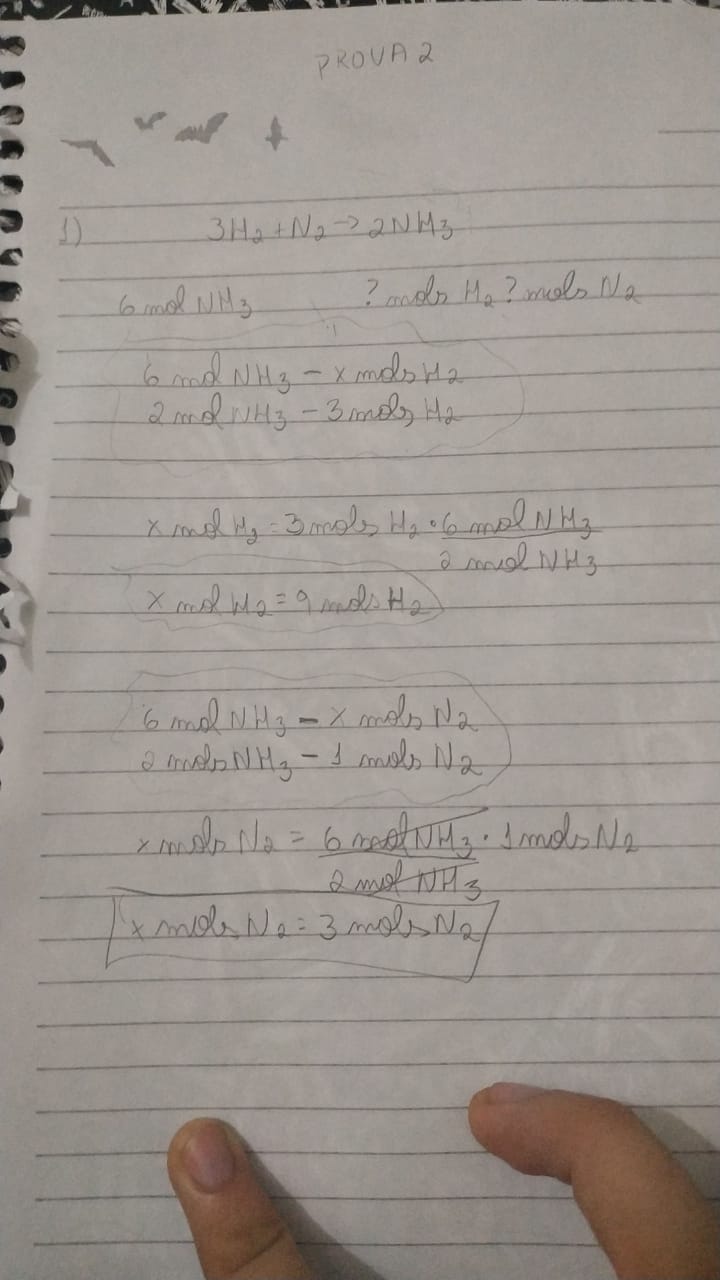 PROVA 2
1) 3H₂ + N₂ → 2NH₃
6 mol NH₃ ? mols H₂ ? mols N₂
6 mol NH₃ - x mols H₂
2 mol NH₃ - 3 mols H₂
x mol H₂ = 3 mols H₂ • 6 mol NH₃
2 mol NH₃
x mol H₂ = 9 mols H₂
6 mol NH₃ - x mols N₂
2 mols NH₃ - 1 mols N₂
x mols N₂ = 6 mol NH₃ • 1 mols N₂
2 mol NH₃
x mols N₂ = 3 mols N₂